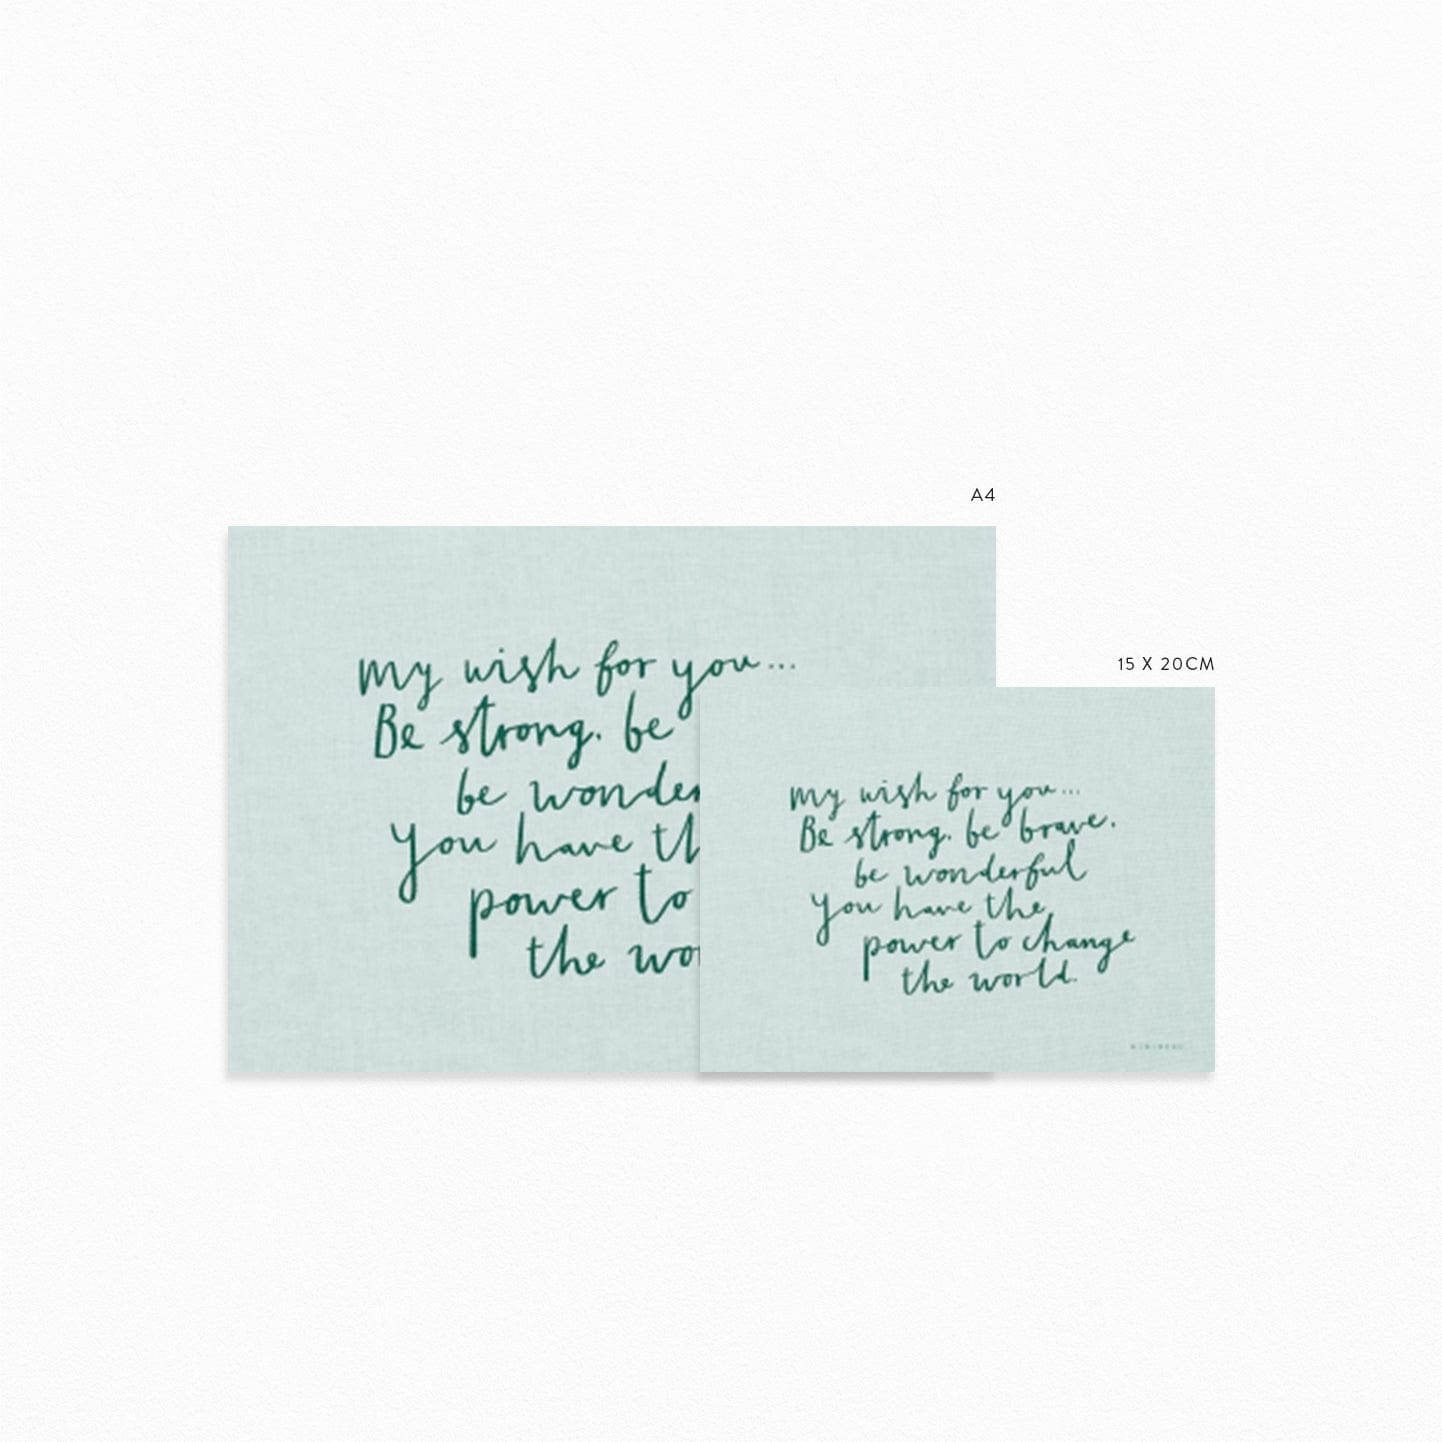 A4
my wish for you...
Be strong. be
be wonder
You have th
power to
the wo
15 X 20CM
my wish for you...
Be strong. be brave.
be wonderful
You have the
power to change
the world.